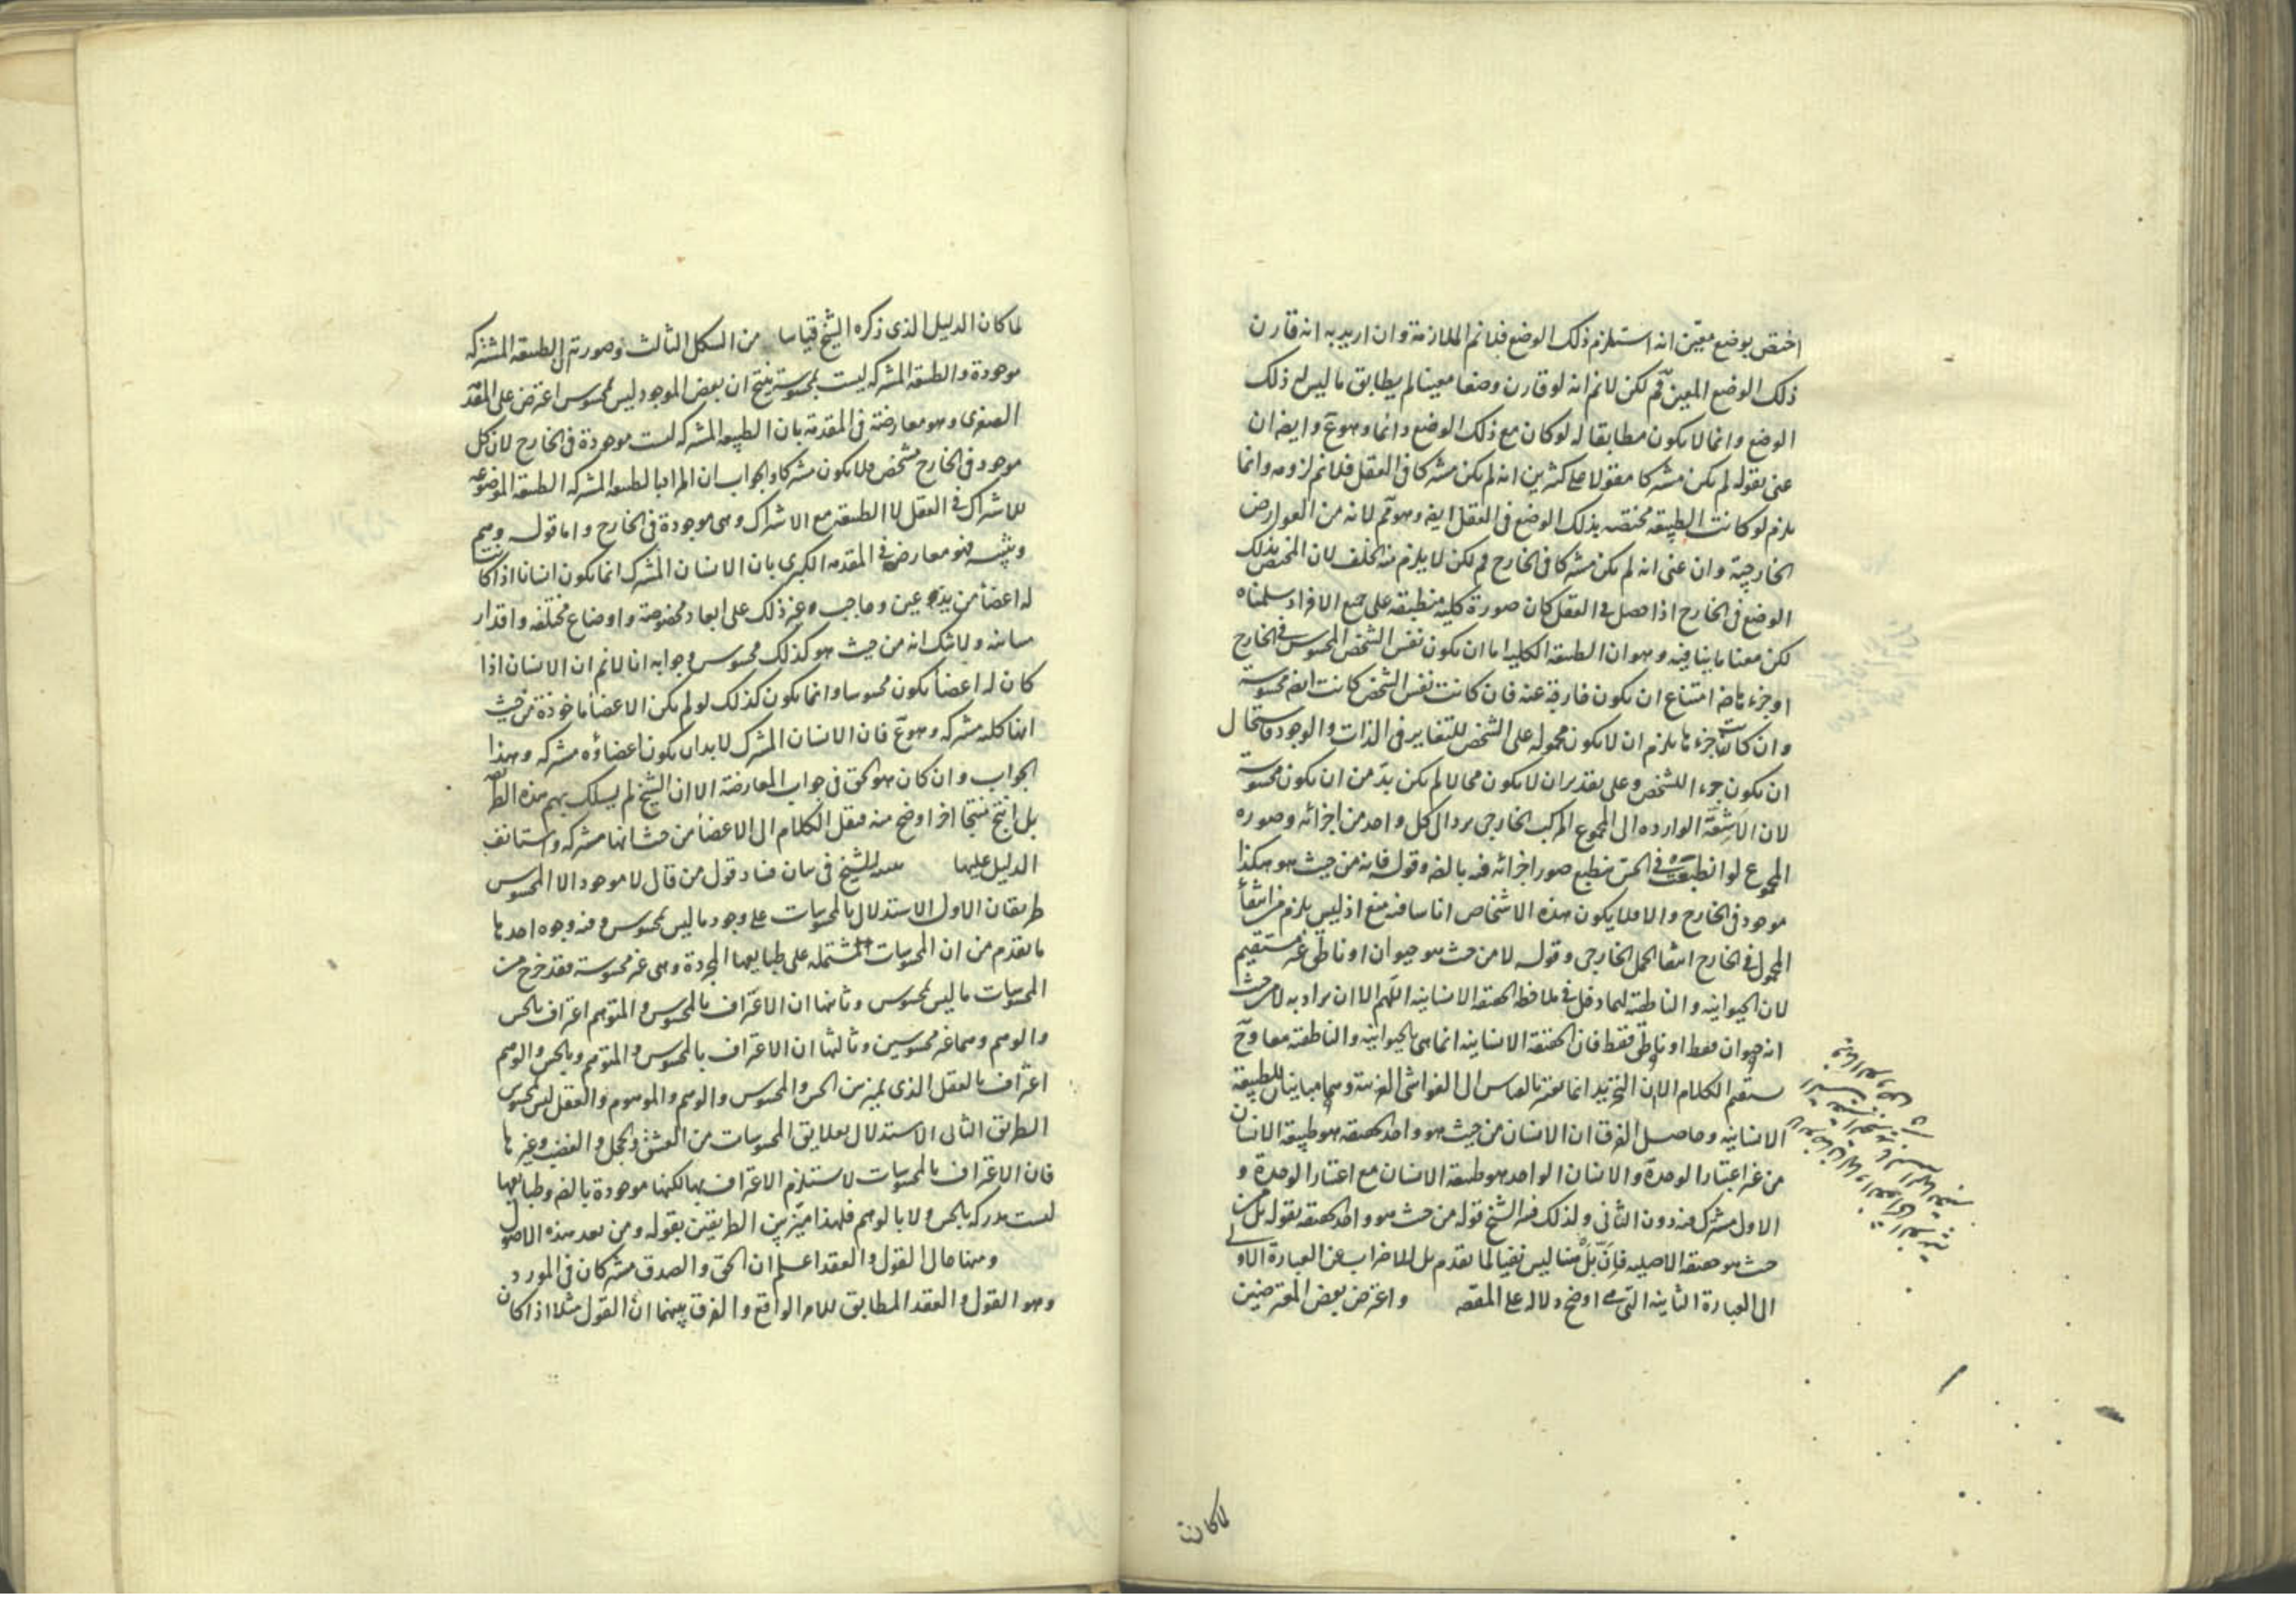 اختص بوضع معين انه استلزم ذلك الوضع فلانم الملازمة وان اريد به انه قارن
ذلك الوضع المعين فم لكن لانم انه لو قارن وضعا معينا لم يطابق ما ليس له ذلك
الوضع وانما لا يكون مطابقا له لو كان مع ذلك الوضع دائما وهو ع وايضا ان
عنى بقوله لم يكن مشتركا مقولا على كثيرين انه لم يكن مشتركا فى العقل فلانم لزومه وانما
يلزم لو كانت الطبيعة مختصه بذلك الوضع فى العقل ايضا وهو مم لانه من العوارض
الخارجية وان عنى انه لم يكن مشتركا فى الخارج فم لكن لا يلزم منه الخلف لان المختص بذلك
الوضع فى الخارج اذا حصل فى العقل كان صورة كلية منطبقه على جميع الافراد سلمناه
لكن معنا ما ينافيه وهو ان الطبيعة الكلية اما ان يكون نفس الشخص المحسوس فى الخارج
او جزءه ضرورة امتناع ان يكون خارجة عنه فان كانت نفس الشخص كانت ايضا محسوسة
وان كانت جزءها يلزم ان لا يكون محموله على الشخص للتغاير فى الذات والوجود فاستحال
ان يكون جزءا للشخص وعلى تقدير ان لا يكون محالا لم يكن بد من ان يكون محسوسة
لان الاشعة الوارده الى المجموع المركب الخارجى يرد الى كل واحد من اجزائه وصوره
المجموع لو انطبعت فى الحس ينطبع صور اجزائه فيه بالضرورة وقوله فانه من حيث هو هكذا
موجود فى الخارج والا فلا يكون هذه الاشخاص اناسا فيه منع اذ ليس يلزم من انتفاء
المحمول فى الخارج انتفا الحمل الخارجى وقوله لا من حيث هو حيوان او ناطق غير مستقيم
لان الحيوانية والناطقية لهما دخل فى ملاحظة الحقيقة الانسانية اللهم الا ان يراد به لا من حيث
انه حيوان فقط او ناطق فقط فان الحقيقة الانسانية انما هى بالحيوانية والناطقية معا وح
يستقيم الكلام الا ان التجريد انما يعتبر بالقياس الى الغواشى الغريبة وهما ليسا مباينان للطبيعة
الانسانية وحاصل الفرق ان الانسان من حيث هو واحد الحقيقة هو طبيعة الانسان
من غير اعتبار الوحدة والانسان الواحد هو طبيعة الانسان مع اعتبار الوحدة و
الاول مشترك فيه دون الثانى ولذلك فسر الشيخ قوله من حيث هو واحد الحقيقة بقوله بل من
حيث هو حقيقة الاصلية فان بل هنا ليس نفيا لما تقدم بل للاضراب عن العبارة الاولى
الى العبارة الثانية التى هى اوضح دلالة على المقصود واعترض بعض المعترضين
لما كانت
لما كان الدليل الذى ذكره الشيخ قياسا من الشكل الثالث وصورته ان الطبيعة المشتركه
موجودة والطبيعة المشتركه ليست بمحسوسة ينتج ان بعض الموجود ليس بمحسوس اعترض على المقدمة
الصغرى وهو معارضة فى المقدمة بان الطبيعة المشتركه ليست موجودة فى الخارج لان كل
موجود فى الخارج مشخص فلا يكون مشتركا والجواب ان المراد بالطبيعة المشتركه الطبيعة المعروضة
للاشتراك فى العقل لا الطبيعة مع الاشتراك وهى موجودة فى الخارج واما قوله وهم
وتنبيه فهو معارضة فى المقدمة الكبرى بان الانسان المشترك انما يكون انسانا اذا كانت
له اعضا من يد و عين وحاجب وغير ذلك على ابعاد مخصوصة واوضاع مختلفه واقدار
متباينه ولا شك انه من حيث هو كذلك محسوس وجوابه انا لانم ان الانسان اذا
كان له اعضا يكون محسوسا وانما يكون كذلك لو لم يكن الاعضا ماخوذة من حيث
انها كليه مشتركه وهو ع فان الانسان المشترك لابد ان يكون اعضاؤه مشتركه وهذا
الجواب وان كان هو الحق فى جواب المعارضة الا ان الشيخ لم يسلك بهم هذه الطريقة
بل انتج نتيجا اخر اوضح منه فنقل الكلام الى الاعضا من حيث انها مشتركه واستانف
الدليل عليها للشيخ فى بيان فساد قول من قال لا موجود الا المحسوس
طريقان الاول الاستدلال بالمحسوسات على وجود ما ليس بمحسوس وفيه وجوه احدها
ما تقدم من ان المحسوسات مشتمله على طبايعها المجردة وهى غير محسوسة فقد خرج من
المحسوسات ما ليس بمحسوس وثانيها ان الاعتراف بالمحسوس والمتوهم اعتراف بالحس
والوهم وهما غير محسوسين وثالثها ان الاعتراف بالمحسوس والمتوهم وبالحس والوهم
اعتراف بالعقل الذى يميز بين الحس والمحسوس والوهم والموهوم والعقل ليس بمحسوس
الطريق الثانى الاستدلال بعلايق المحسوسات من العشق والخجل والغضب وغيرها
فان الاعتراف بالمحسوسات لا يستلزم الاعتراف بها لكنها موجودة بالضرورة وطبايعها
ليست مدركه بالحس ولا بالوهم فلهذا ميز بين الطريقين بقوله ومن بعد هذه الاصول
ومنها حال القول والعقد اعلم ان الحق والصدق مشتركان فى المورد
وهو القول والعقد المطابق للامر الواقع والفرق بينهما ان القول مثلا اذا كان